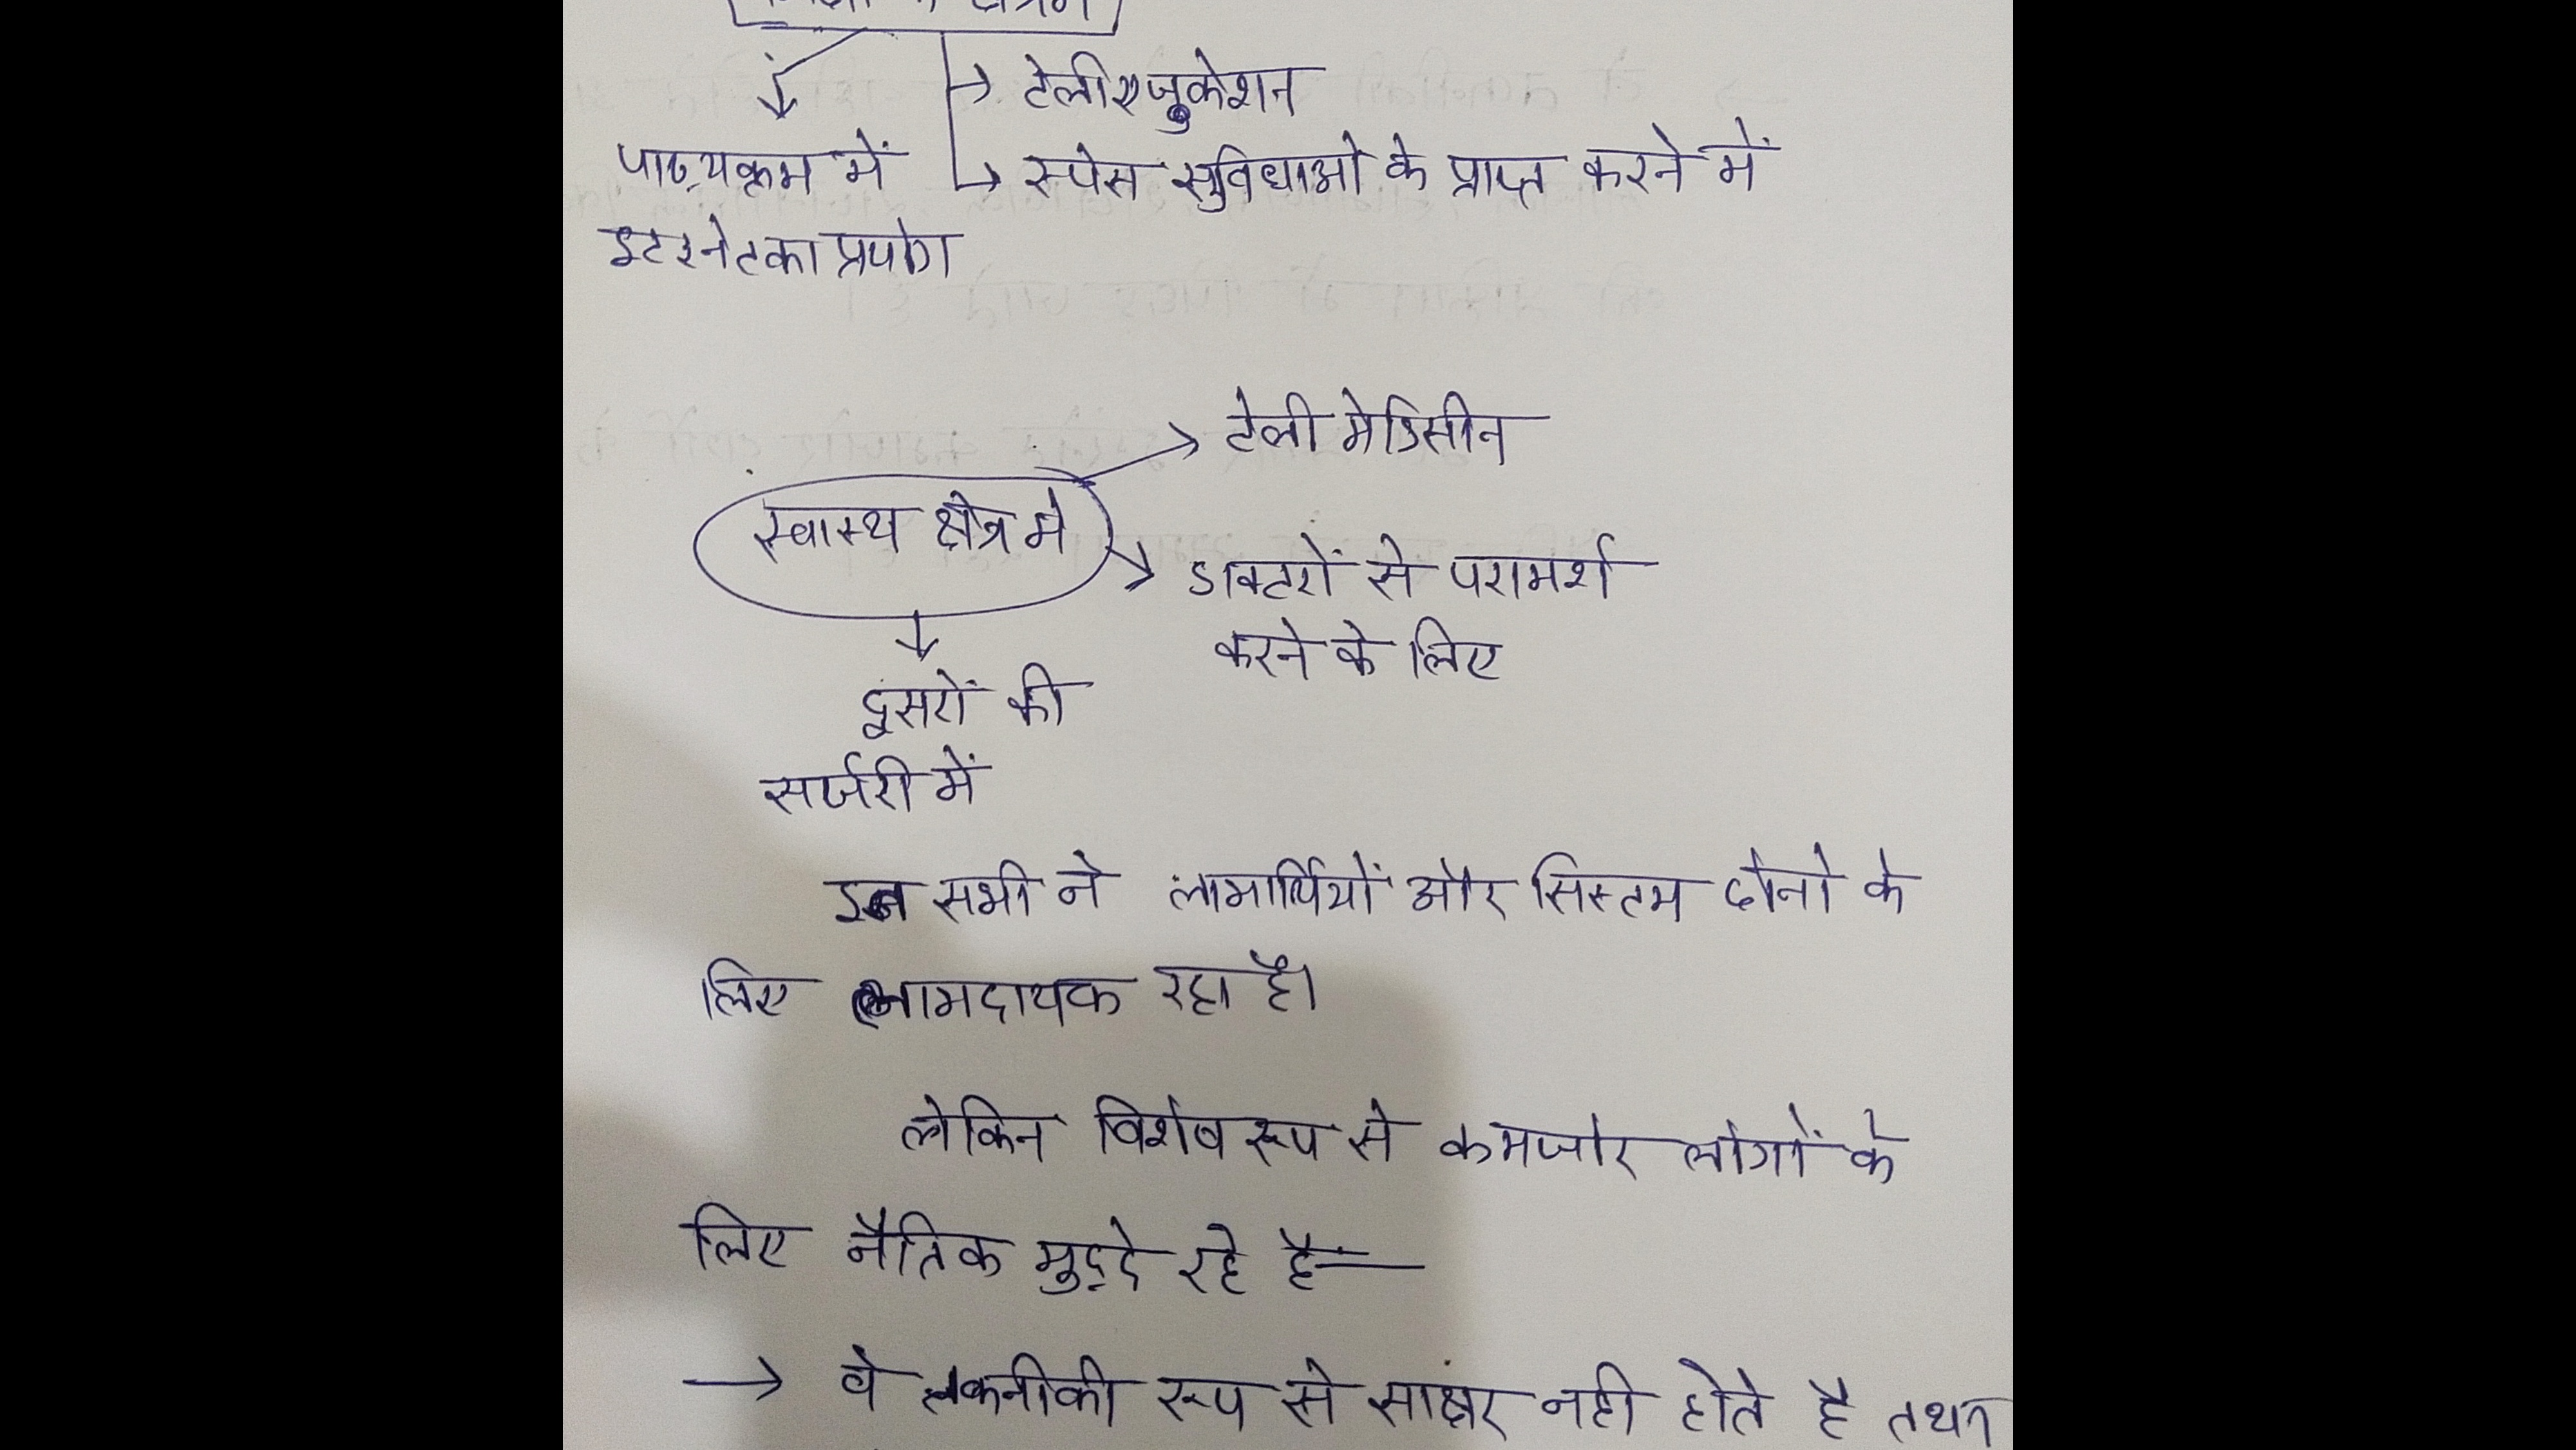 टेलीएजुकेशन
पाठ्यक्रम में
स्पेस सुविधाओ के प्राप्त करने में
इटरनेट का प्रयोग
टेली मेडिसीन
स्वास्थ क्षेत्र मे
डाक्टरों से परामर्श
करने के लिए
दूसरों की
सर्जरी में
इन सभी ने लाभार्थियों और सिस्टम दोनो के
लिए लाभदायक रहा है।
लेकिन विशेष रूप से कमजोर लोगों के
लिए नैतिक मुद्दे रहे है—
→ वे तकनीकी रूप से साक्षर नही होते है तथा